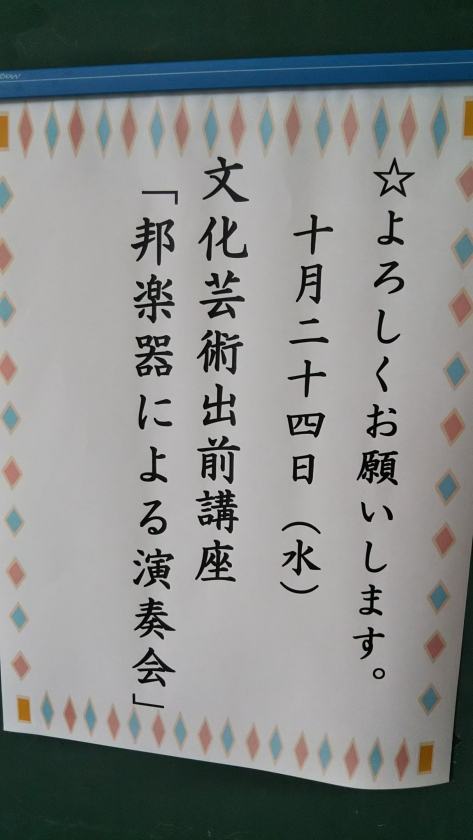 ☆よろしくお願いします。
十月二十四日（水）
文化芸術出前講座
「邦楽器による演奏会」